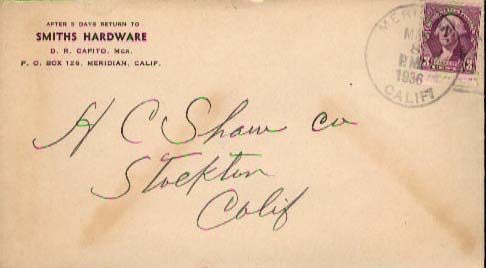 AFTER 5 DAYS RETURN TO
SMITHS HARDWARE
D. R. CAPITO, MGR.
P. O. BOX 126, MERIDIAN, CALIF.
8
P.M
1936
CALIF.
3
H C Shaw Co
Stockton
Calif